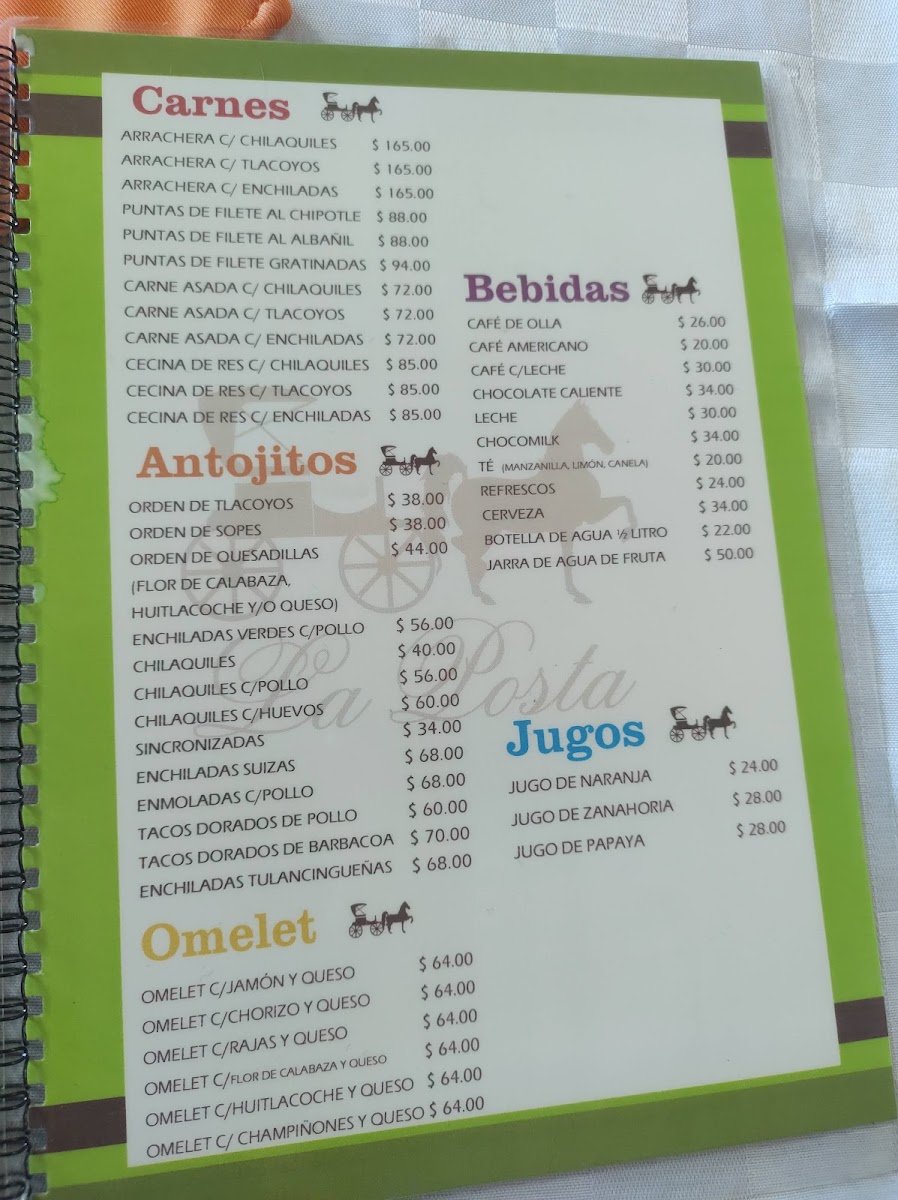 Carnes
ARRACHERA C/ CHILAQUILES $ 165.00
ARRACHERA C/ TLACOYOS $ 165.00
ARRACHERA C/ ENCHILADAS $ 165.00
PUNTAS DE FILETE AL CHIPOTLE $ 88.00
PUNTAS DE FILETE AL ALBAÑIL $ 88.00
PUNTAS DE FILETE GRATINADAS $ 94.00
CARNE ASADA C/ CHILAQUILES $ 72.00
CARNE ASADA C/ TLACOYOS $ 72.00
CARNE ASADA C/ ENCHILADAS $ 72.00
CECINA DE RES C/ CHILAQUILES $ 85.00
CECINA DE RES C/ TLACOYOS $ 85.00
CECINA DE RES C/ ENCHILADAS $ 85.00
Antojitos
ORDEN DE TLACOYOS $ 38.00
ORDEN DE SOPES $ 38.00
ORDEN DE QUESADILLAS $ 44.00
(FLOR DE CALABAZA,
HUITLACOCHE Y/O QUESO)
ENCHILADAS VERDES C/POLLO $ 56.00
CHILAQUILES $ 40.00
CHILAQUILES C/POLLO $ 56.00
CHILAQUILES C/HUEVOS $ 60.00
SINCRONIZADAS $ 34.00
ENCHILADAS SUIZAS $ 68.00
ENMOLADAS C/POLLO $ 68.00
TACOS DORADOS DE POLLO $ 60.00
TACOS DORADOS DE BARBACOA $ 70.00
ENCHILADAS TULANCINGUEÑAS $ 68.00
Omelet
OMELET C/JAMÓN Y QUESO $ 64.00
OMELET C/CHORIZO Y QUESO $ 64.00
OMELET C/RAJAS Y QUESO $ 64.00
OMELET C/FLOR DE CALABAZA Y QUESO $ 64.00
OMELET C/HUITLACOCHE Y QUESO $ 64.00
OMELET C/ CHAMPIÑONES Y QUESO $ 64.00
Bebidas
CAFÉ DE OLLA $ 26.00
CAFÉ AMERICANO $ 20.00
CAFÉ C/LECHE $ 30.00
CHOCOLATE CALIENTE $ 34.00
LECHE $ 30.00
CHOCOMILK $ 34.00
TÉ (MANZANILLA, LIMÓN, CANELA) $ 20.00
REFRESCOS $ 24.00
CERVEZA $ 34.00
BOTELLA DE AGUA ½ LITRO $ 22.00
JARRA DE AGUA DE FRUTA $ 50.00
La Posta
Jugos
JUGO DE NARANJA $ 24.00
JUGO DE ZANAHORIA $ 28.00
JUGO DE PAPAYA $ 28.00